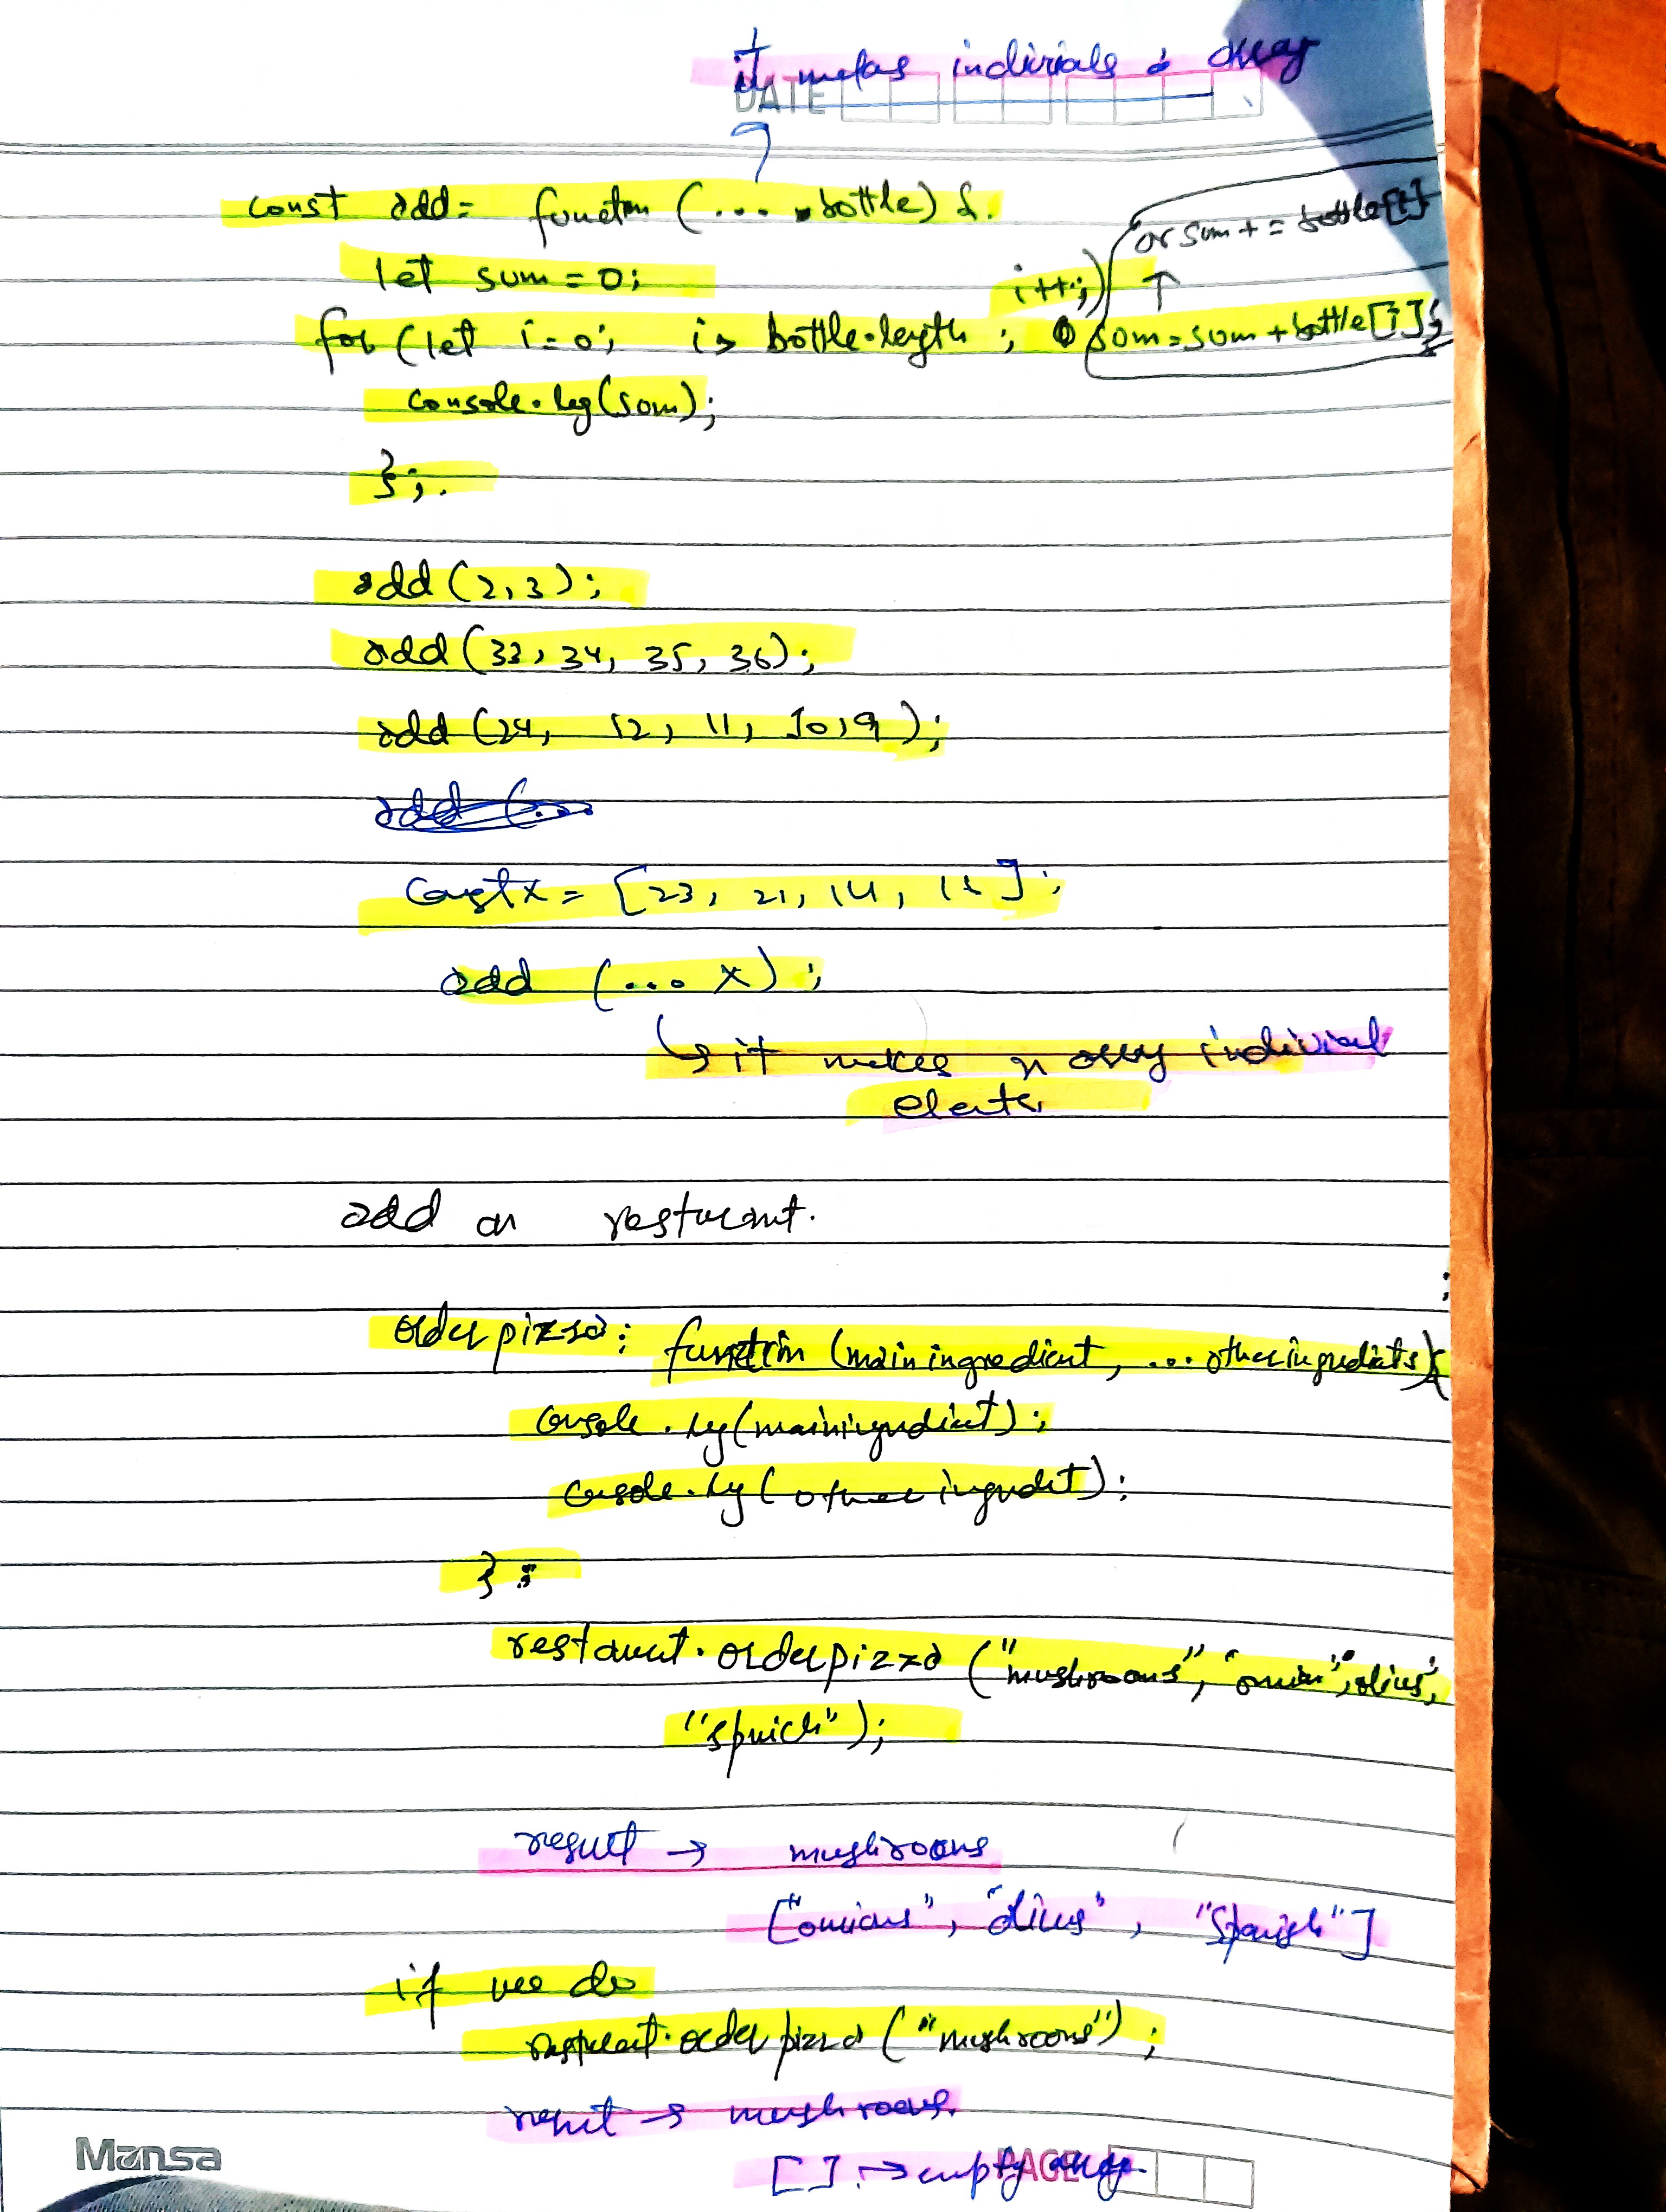 it makes individals a array
DATE
const add = function (... bottle) {
or sum + = bottle[i]
let sum = 0;
i++;)
for (let i = 0; i > bottle.length ; sum = sum + bottle[i];
console.log(sum);
};
add (2,3);
add (33, 34, 35, 36);
add (24, 12, 11, 10, 9);
add (...
const x = [23, 21, 14, ];
add (... x);
↳ it makes array individual
elements
add on restaurant.
orderpizza: function (mainingredient, ... otheringredients) {
console.log(mainingredient);
console.log(otheringredient);
};
restaurant.orderpizza ("mushrooms", "onion", olives",
"spinich");
result → mushrooms
["onions", "olives", "Spanish"]
if we do
restaurant.orderpizza ("mushrooms");
result → mushrooms.
[ ] → empty array.
Mansa
PAGE